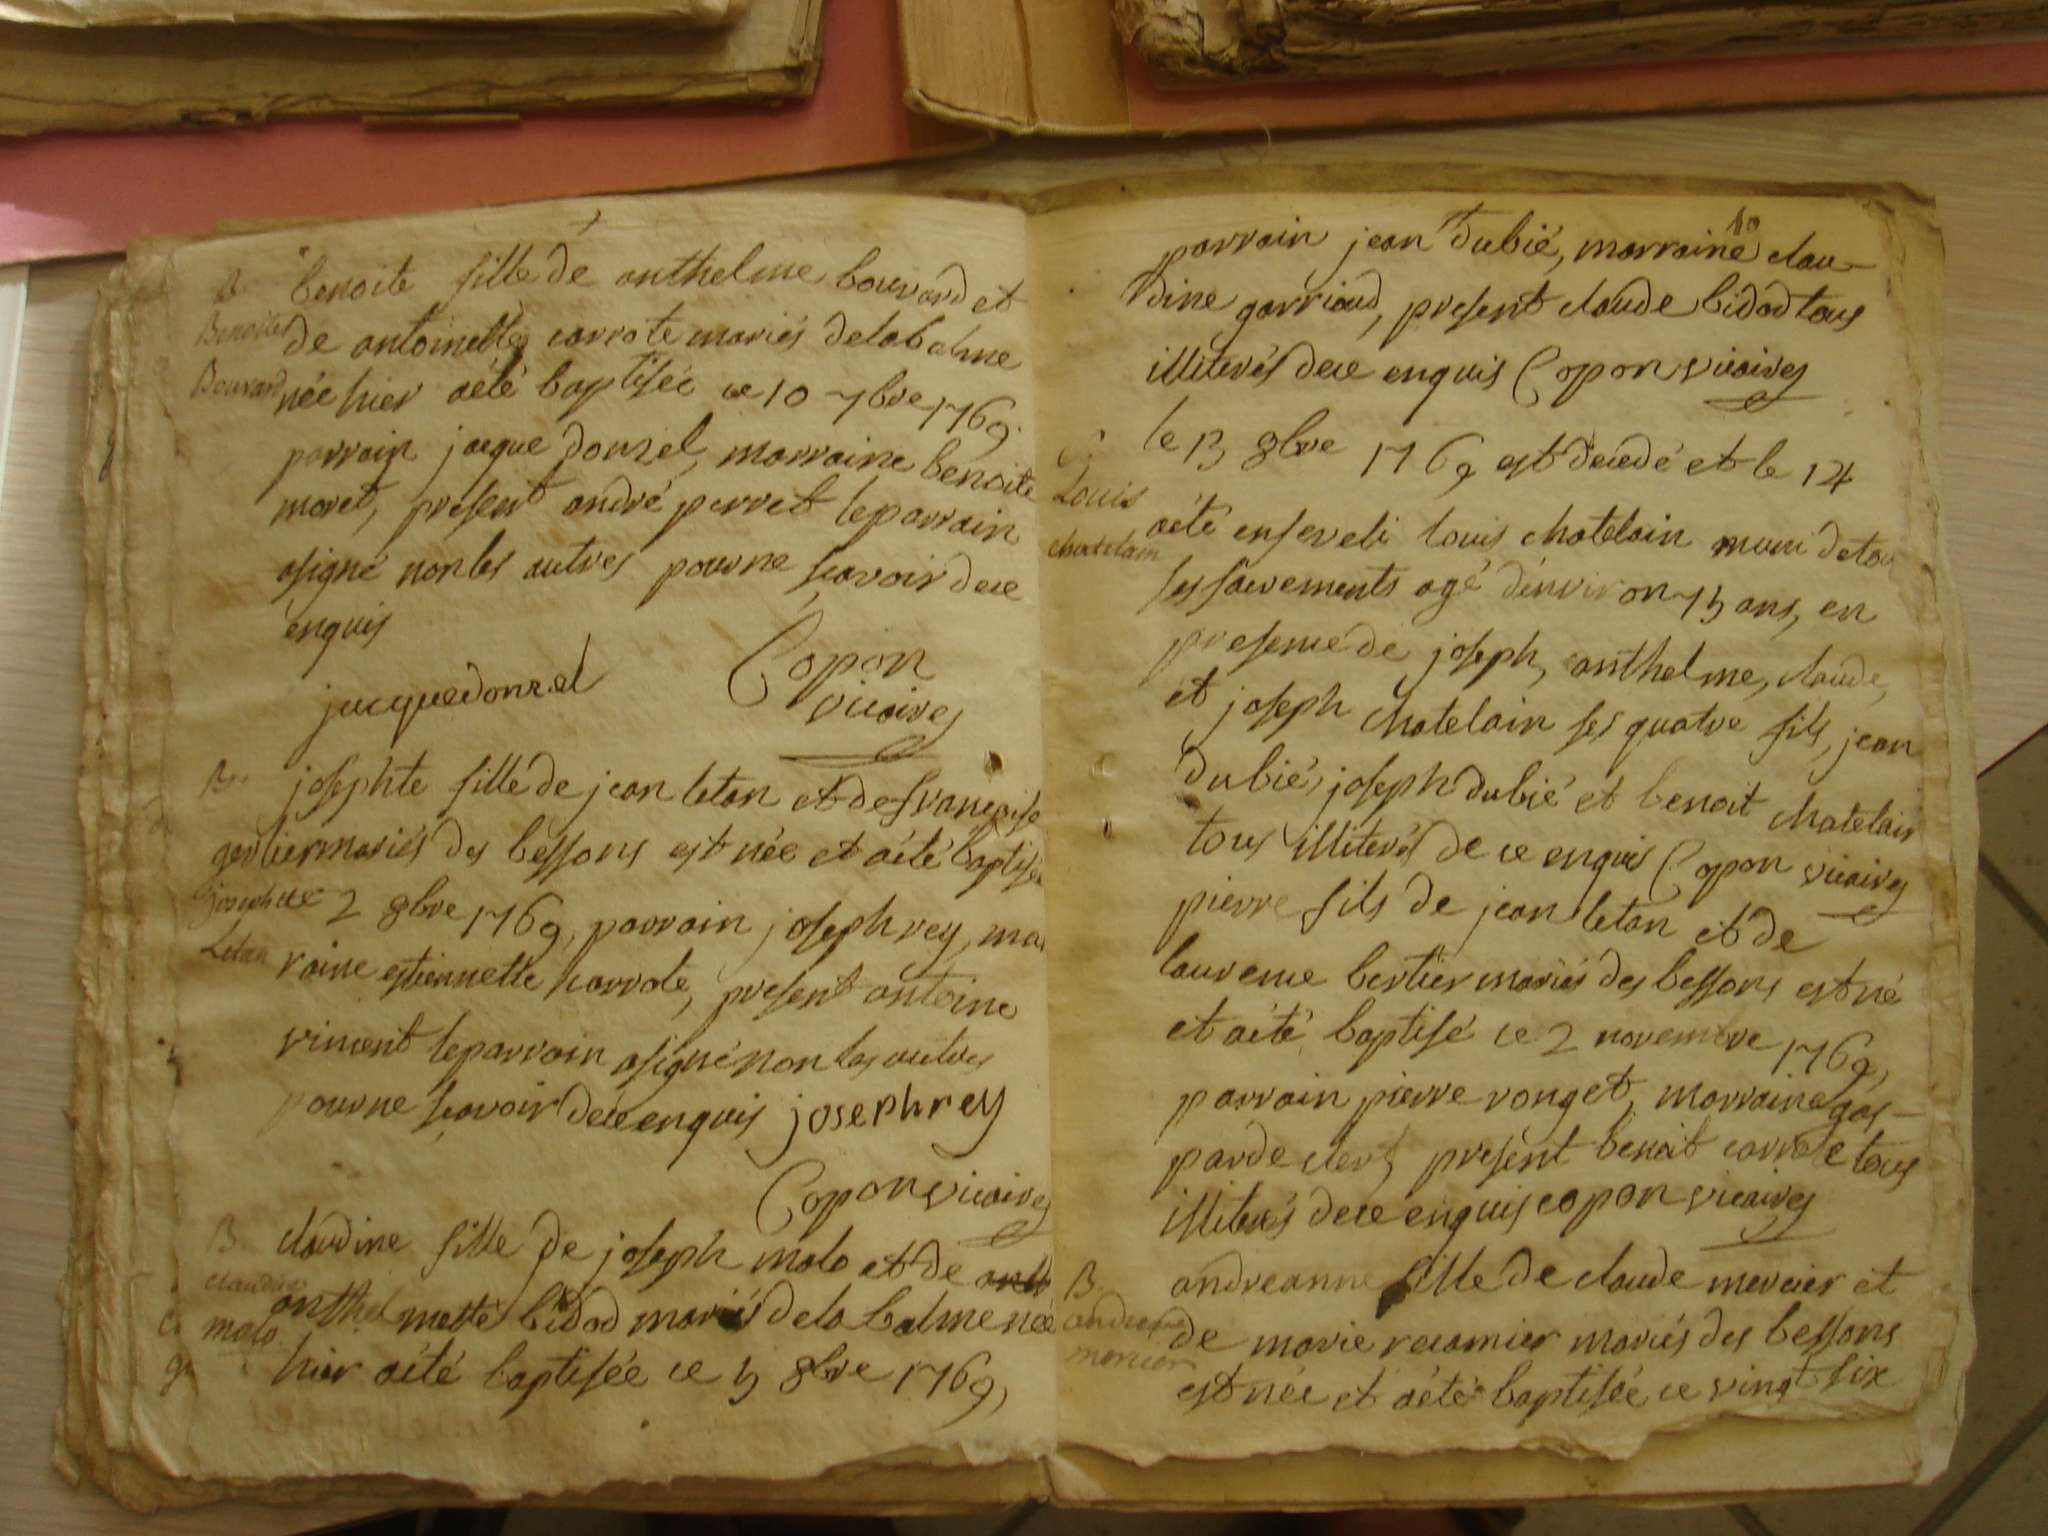 B.
Benoite
Bouvard
benoite fille de anthelme bouvard et
de antoinette carrote mariés delabalme
née hier aété baptisée ce 10 7bre 1769.
parrain jacque donzel, marraine benoite
moret, present andré perret leparrain
asigné non les autres pourne scavoir dece
enquis
jacquedonzel
Copon
vicaire
B.
josephte
Letan
josephte fille de jean letan et de francoise
gerliermariés des bessons est née et aété baptisée
2 8bre 1769, parrain joseph rey, mar
raine estiennette karrote, present antoine
vincent leparrain asigné non les autres
pourne scavoir dece enquis josephrey
Copon vicaire
B.
claudine
molo
claudine fille de joseph molo et de
anthelmette bidod mariés dela balme née
hier aété baptisée ce 5 8bre 1769,
10
parrain jean dubié, marraine clau-
dine garriaud, present claude bidod tous
illiterés dece enquis Copon vicaire
Louis
chatelain
le 13 8bre 1769 est decedé et le 14
aété enseveli louis chatelain muni detou
ses sacrements agé d'environ 75 ans, en
presence de joseph, anthelme, claude,
et joseph chatelain ses quatre fils, jean
dubié, joseph dubié et benoit chatelain
tous illiterés de ce enquis Copon vicaire
pierre fils de jean letan et de
laurence bertier mariés des bessons est né
et aété baptisé ce 2 novembre 1769,
parrain pierre ronget, marraine gas-
parde clerc, present benoit carrote tous
illiterés dece enquis copon vicaire
B.
andreanne
mercier
andreanne fille de claude mercier et
de marie recamier mariés des bessons
est née et aété baptisée ce vingt six